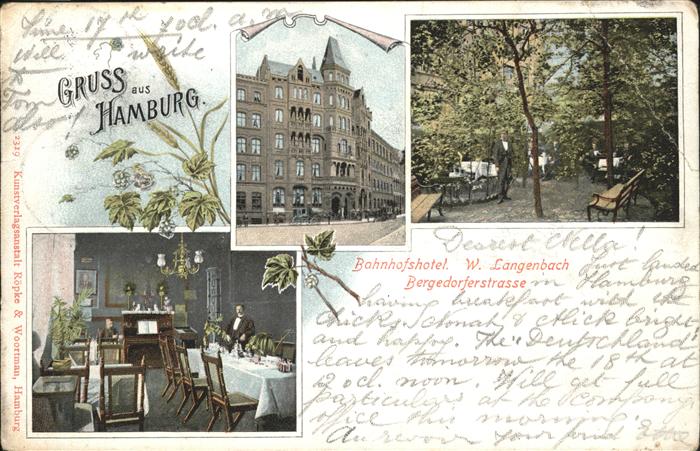 June 17th 7 ocl. a. m
Will write
Tom
also
GRUSS aus
HAMBURG.
Bahnhofshotel. W. Langenbach
Bergedorferstrasse
Dearest Nella!
Just landed
in Hamburg
having breakfast with the
chicks, & Chick bright
and happy. The "Deutschland"
leaves tomorrow the 18th at
2 ocl. noon. Will get full
particulars at the Company
office this morning.
Au revoir your fond
2319 Kunstverlagsanstalt Röpke & Woortman, Hamburg